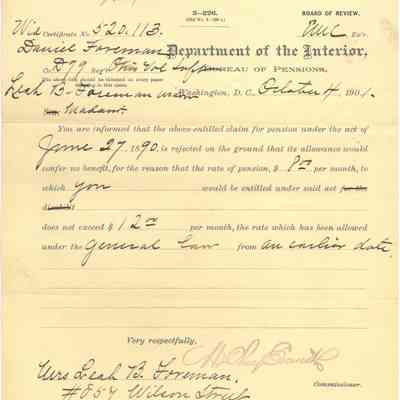 3—226.
BOARD OF REVIEW.
Wid Certificate No. 520.113. EMC Ex'r.
Daniel Foreman Department of the Interior,
Co. D 79 Reg't Ohio Vol Inf BUREAU OF PENSIONS,
Leah B. Foreman Washington, D. C., October 4, 1901.
Madam:
You are informed that the above-entitled claim for pension under the act of
June 27, 1890, is rejected on the ground that its allowance would
confer no benefit, for the reason that the rate of pension, $ 8 00 per month, to
which you would be entitled under said act for the
disability
does not exceed $ 12 00 per month, the rate which has been allowed
under the General Law from an earlier date.
Very respectfully,
Mrs Leah B. Foreman,
Commissioner.
#857 Wilson Street